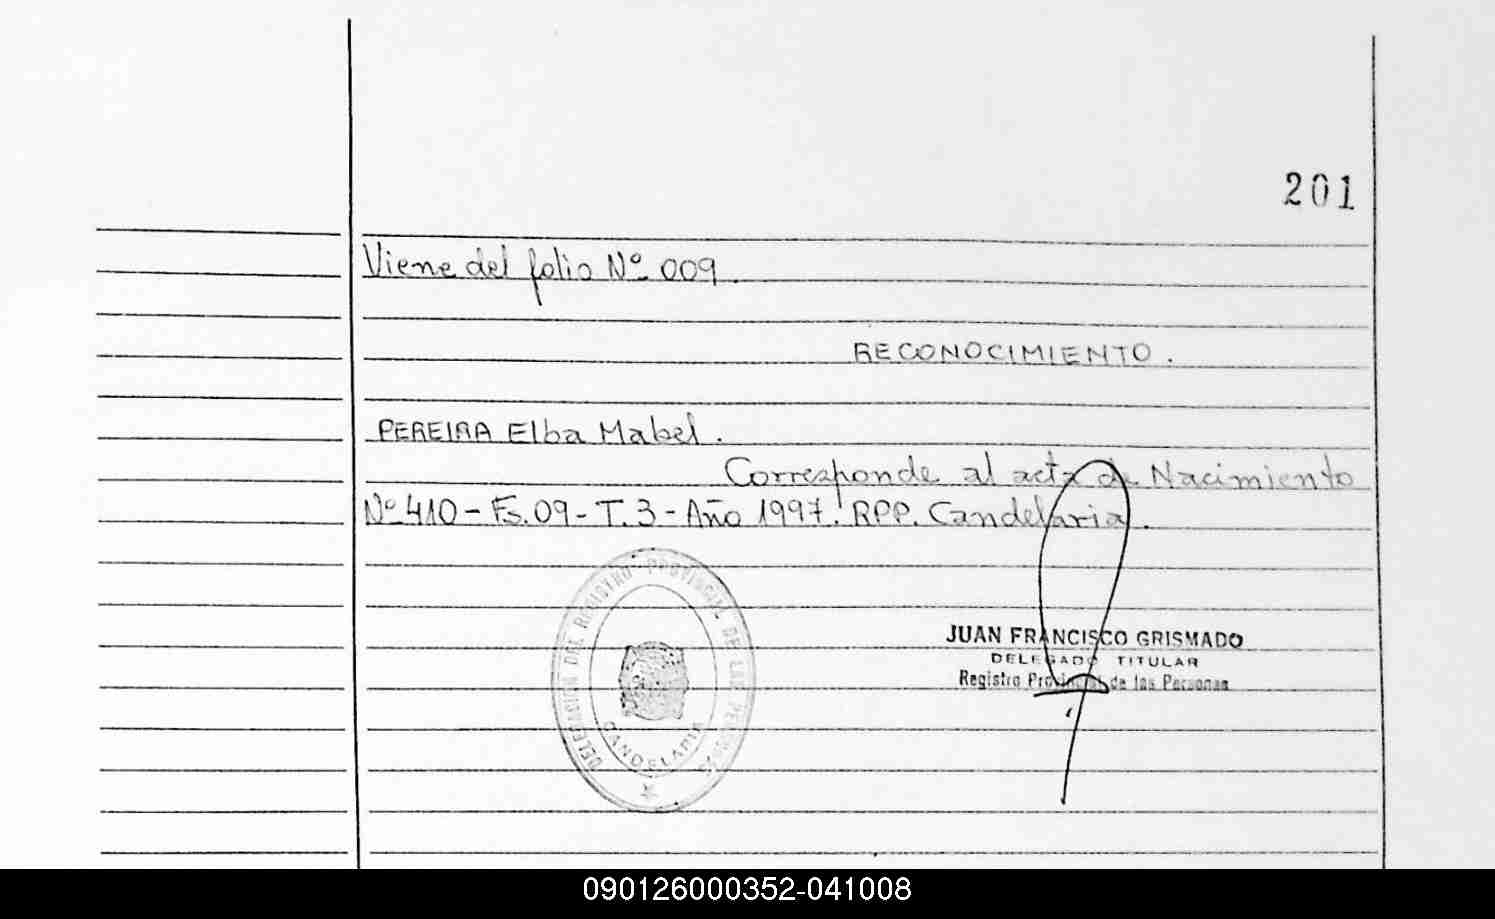 201
Viene del folio Nº 009.
RECONOCIMIENTO.
PEREIRA Elba Mabel.
Corresponde al acta de Nacimiento
Nº 410 - Fs. 09 - T. 3 - Año 1997. RPP. Candelaria.
DELEGACION DEL REGISTRO PROVINCIAL DE LAS PERSONAS
CANDELARIA
JUAN FRANCISCO GRISMADO
DELEGADO TITULAR
Registro Provincial de las Personas
090126000352-041008